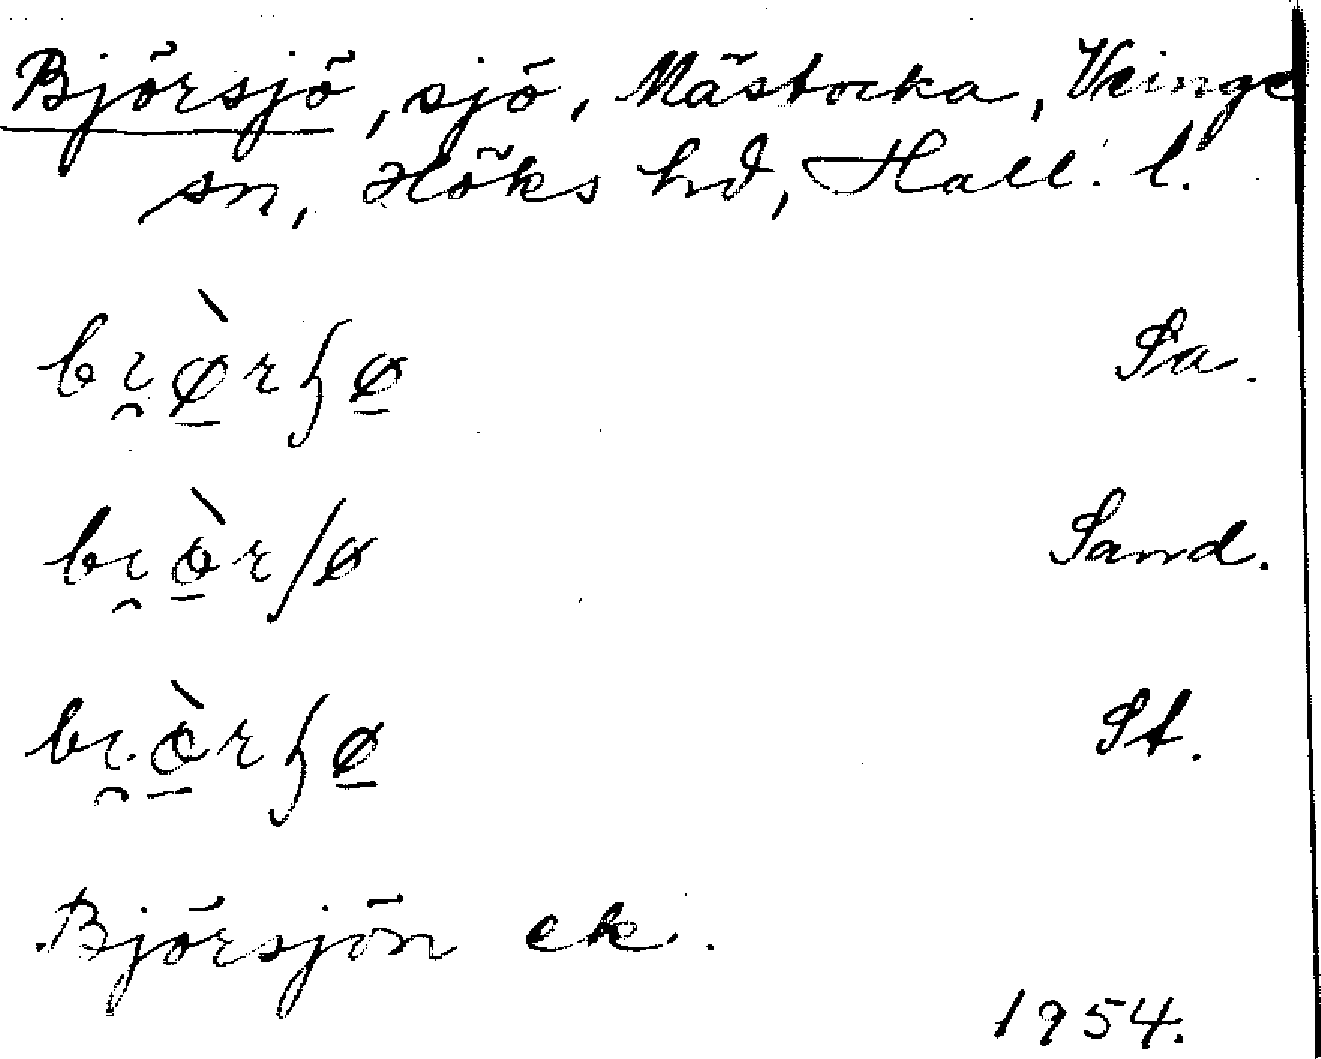 Björsjö, sjö, Mästocka, Veinge
sn, Höks hd, Hall. l.
bı̯ø̠̀rɧø̠ Sa.
bı̯ò̠rʃø Sand.
bı̯ò̠rɧø̠ St.
Björsjön ek.
1954.